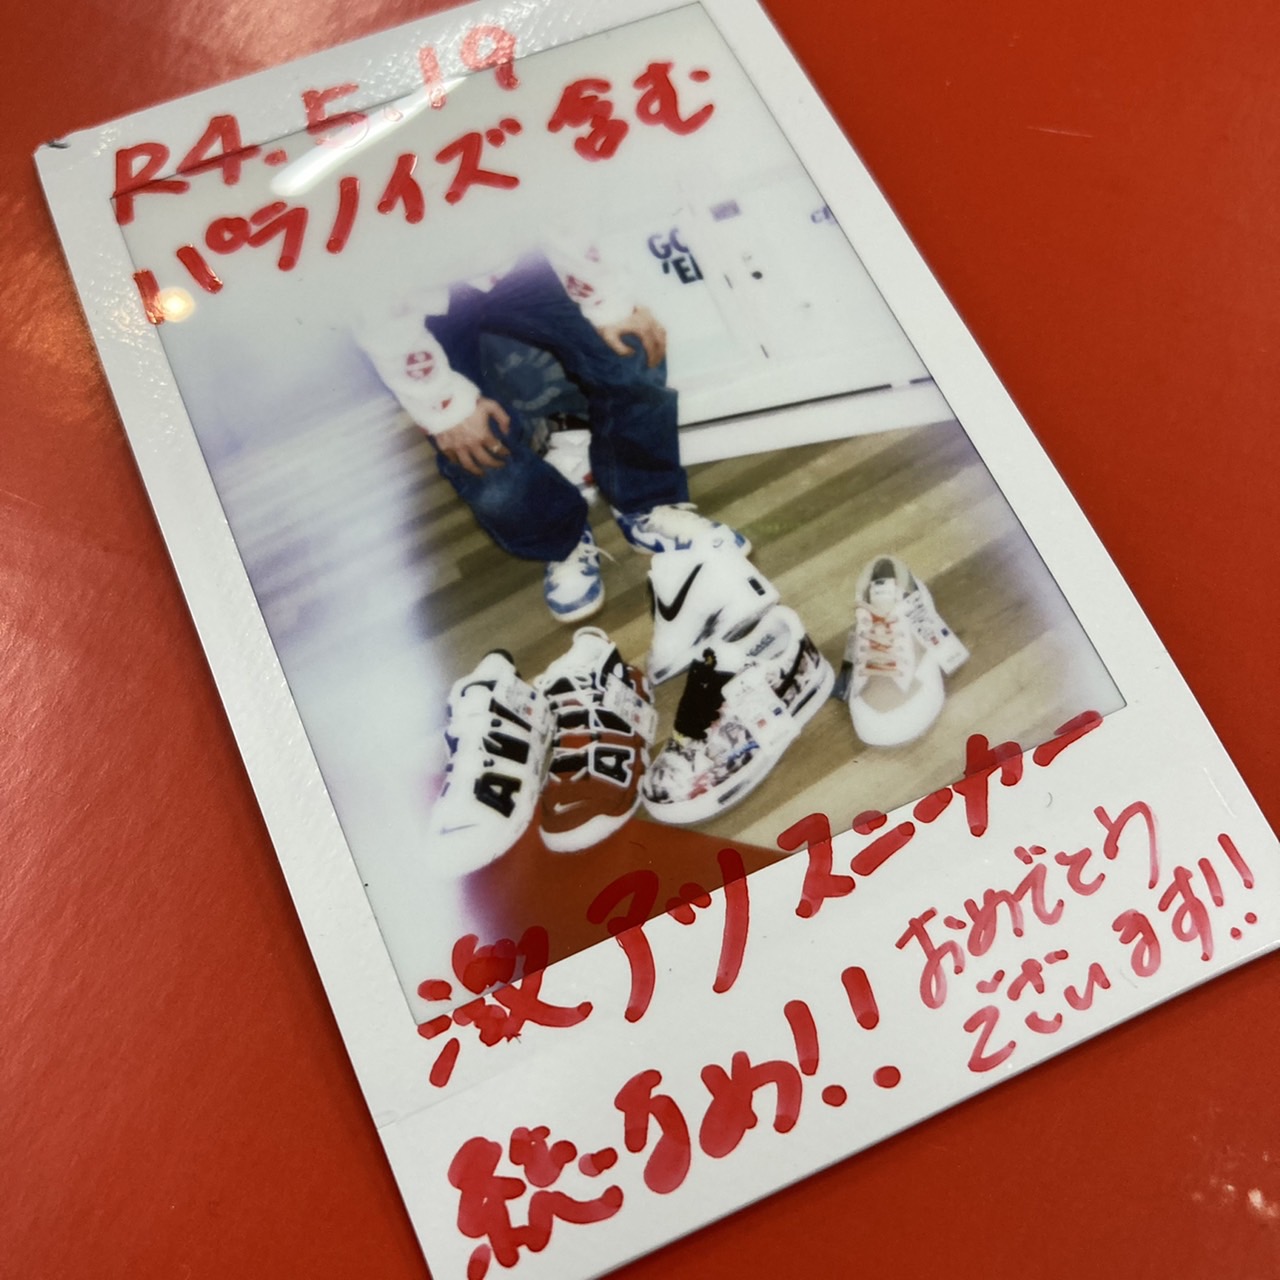 R4.5.19
パラノイズ含む
GO
AIR
激アツスニーカー
総なめ!!
おめでとう
ございます!!